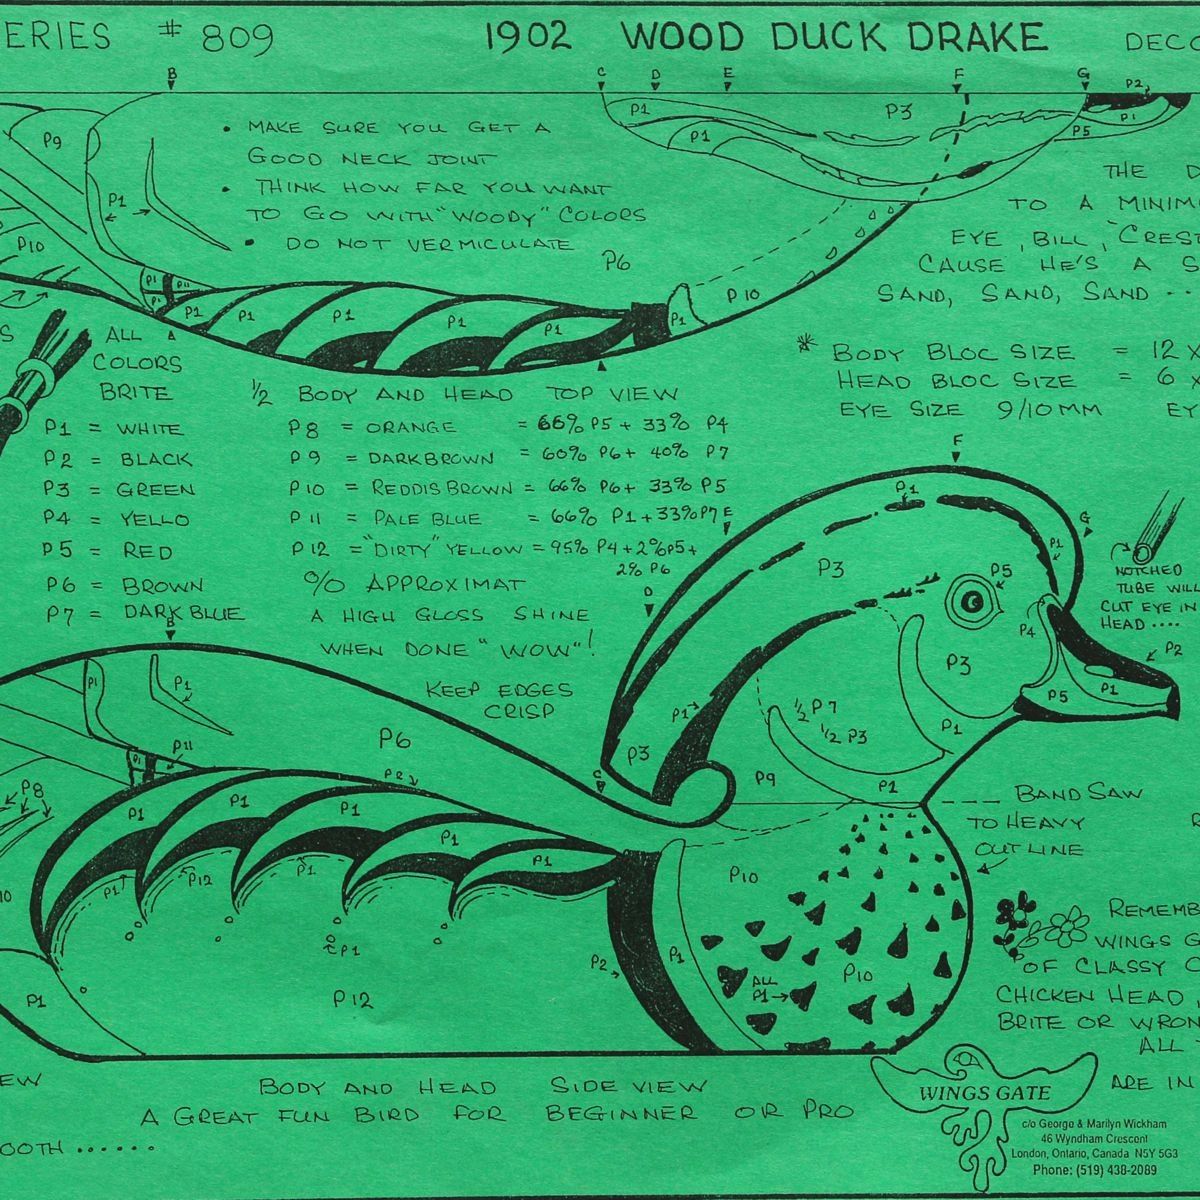 ERIES # 809
1902 WOOD DUCK DRAKE
DECO
B
C
D
E
F
G
P2
P1
P5
P3
P1
P1
P9
P1
P10
• MAKE SURE YOU GET A
GOOD NECK JOINT
• THINK HOW FAR YOU WANT
TO GO WITH "WOODY" COLORS
• DO NOT VERMICULATE
P6
P10
P1
P1
P11
P1
P1
P1
P1
P1
P1
THE D
TO A MINIM
EYE, BILL, "CREST
CAUSE HE'S A S
SAND, SAND, SAND --
* BODY BLOC SIZE = 12 X
HEAD BLOC SIZE = 6 X
EYE SIZE 9/10 MM EY
S
ALL
COLORS
BRITE
1/2 BODY AND HEAD TOP VIEW
P1 = WHITE
P2 = BLACK
P3 = GREEN
P4 = YELLO
P5 = RED
P6 = BROWN
P7 = DARK BLUE
P8 = ORANGE = 66% P5 + 33% P4
P9 = DARK BROWN = 60% P6 + 40% P7
P10 = REDDIS BROWN = 66% P6 + 33% P5
P11 = PALE BLUE = 66% P1 + 33% P7
P12 = "DIRTY" YELLOW = 95% P4 + 2% P5 +
2% P6
% APPROXIMAT
A HIGH GLOSS SHINE
WHEN DONE "WOW"!
KEEP EDGES
CRISP
F
E
D
G
B
C
P1
P1
P3
P5
P4
P3
P2
P1
P5
1/2 P7
1/2 P3
P1
P1
P3
P9
P1
NOTCHED
TUBE WILL
CUT EYE IN
HEAD ....
P1
P1
P11
P1
P6
P2
P8
P1
P1
P1
P1
P1
P1
P12
P1
P1
10
P1
P12
P2
P1
P10
ALL
P1
P10
BAND SAW
TO HEAVY
OUTLINE
R
REMEMB
WINGS G
OF CLASSY C
CHICKEN HEAD,
BRITE OR WRON
ALL T
ARE IN
EW
BODY AND HEAD SIDE VIEW
A GREAT FUN BIRD FOR BEGINNER OR PRO
OOTH ......
WINGS GATE
c/o George & Marilyn Wickham
46 Wyndham Crescent
London, Ontario, Canada N5Y 5G3
Phone: (519) 438-2089